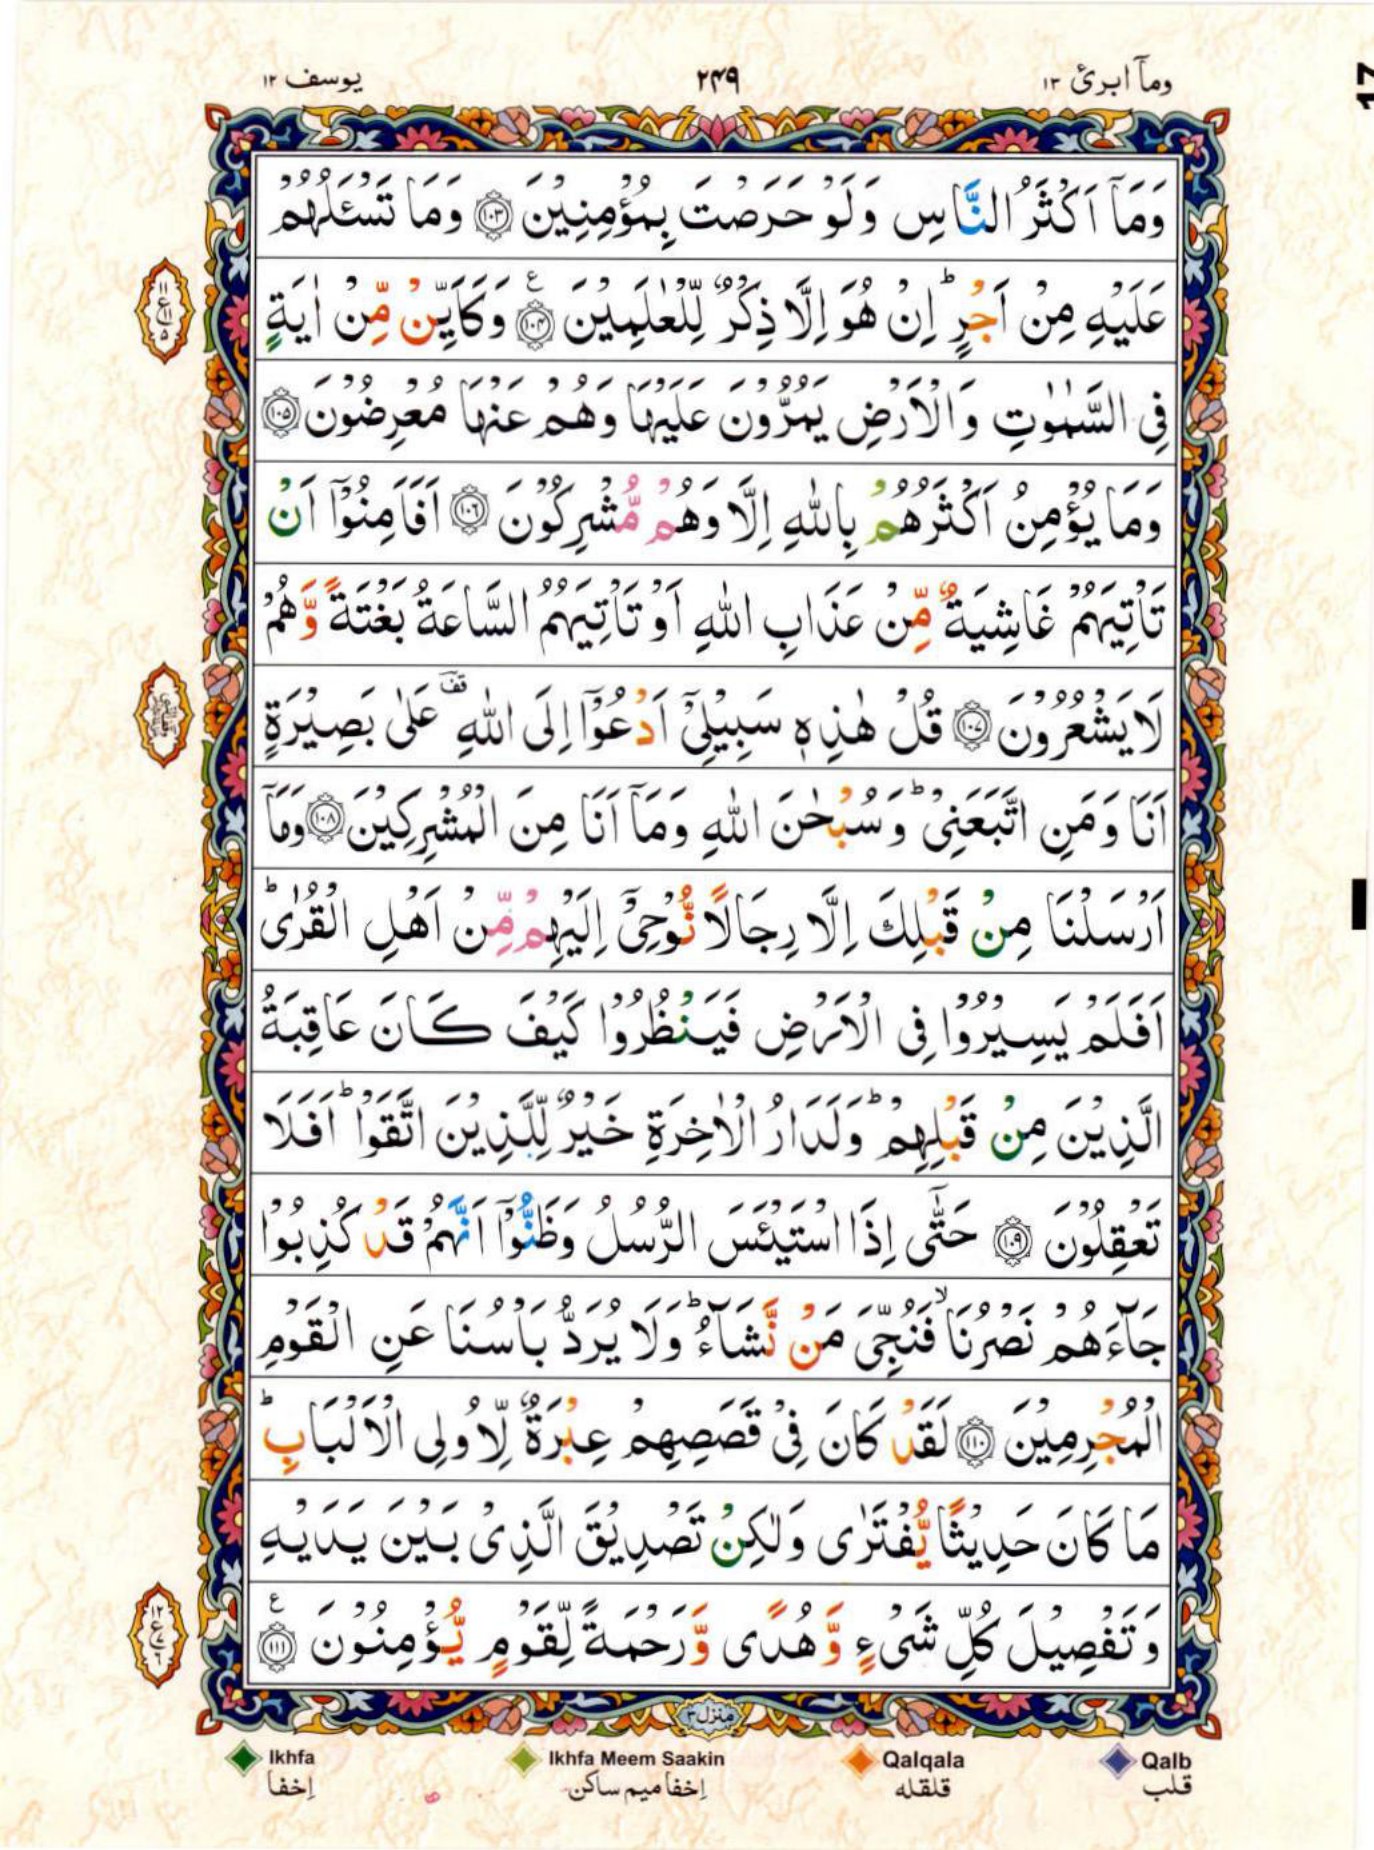 ومآ ابرئ ۱۳
۲۴۹
یوسف ۱۲
وَمَاۤ اَكْثَرُ النَّاسِ وَلَوْ حَرَصْتَ بِمُؤْمِنِيْنَ ﴿۱۰۳﴾ وَمَا تَسْـَٔلُهُمْ
عَلَيْهِ مِنْ اَجْرٍ ؕ اِنْ هُوَ اِلَّا ذِكْرٌ لِّلْعٰلَمِيْنَ ﴿۱۰۴﴾ ع وَكَاَيِّنْ مِّنْ اٰيَةٍ
فِى السَّمٰوٰتِ وَالْاَرْضِ يَمُرُّوْنَ عَلَيْهَا وَهُمْ عَنْهَا مُعْرِضُوْنَ ﴿۱۰۵﴾
وَمَا يُؤْمِنُ اَكْثَرُهُمْ بِاللّٰهِ اِلَّا وَهُمْ مُّشْرِكُوْنَ ﴿۱۰۶﴾ اَفَاَمِنُوْۤا اَنْ
تَاْتِيَهُمْ غَاشِيَةٌ مِّنْ عَذَابِ اللّٰهِ اَوْ تَاْتِيَهُمُ السَّاعَةُ بَغْتَةً وَّهُمْ
لَا يَشْعُرُوْنَ ﴿۱۰۷﴾ قُلْ هٰذِهٖ سَبِيْلِىْۤ اَدْعُوْۤا اِلَى اللّٰهِ قف عَلٰى بَصِيْرَةٍ
اَنَا وَمَنِ اتَّبَعَنِىْ ؕ وَسُبْحٰنَ اللّٰهِ وَمَاۤ اَنَا مِنَ الْمُشْرِكِيْنَ ﴿۱۰۸﴾ وَمَاۤ
اَرْسَلْنَا مِنْ قَبْلِكَ اِلَّا رِجَالًا نُّوْحِىْۤ اِلَيْهِمْ مِّنْ اَهْلِ الْقُرٰى ؕ
اَفَلَمْ يَسِيْرُوْا فِى الْاَرْضِ فَيَنْظُرُوْا كَيْفَ كَانَ عَاقِبَةُ
الَّذِيْنَ مِنْ قَبْلِهِمْ ؕ وَلَدَارُ الْاٰخِرَةِ خَيْرٌ لِّلَّذِيْنَ اتَّقَوْا ؕ اَفَلَا
تَعْقِلُوْنَ ﴿۱۰۹﴾ حَتّٰۤى اِذَا اسْتَيْـَٔسَ الرُّسُلُ وَظَنُّوْۤا اَنَّهُمْ قَدْ كُذِبُوْا
جَآءَهُمْ نَصْرُنَا ۙ فَنُجِّىَ مَنْ نَّشَآءُ ؕ وَلَا يُرَدُّ بَاْسُنَا عَنِ الْقَوْمِ
الْمُجْرِمِيْنَ ﴿۱۱۰﴾ لَقَدْ كَانَ فِىْ قَصَصِهِمْ عِبْرَةٌ لِّاُولِى الْاَلْبَابِ ؕ
مَا كَانَ حَدِيْثًا يُّفْتَرٰى وَلٰكِنْ تَصْدِيْقَ الَّذِىْ بَيْنَ يَدَيْهِ
وَتَفْصِيْلَ كُلِّ شَىْءٍ وَّهُدًى وَّرَحْمَةً لِّقَوْمٍ يُّؤْمِنُوْنَ ﴿۱۱۱﴾ ع
منزل ۳
Ikhfa
اِخفا
Ikhfa Meem Saakin
اِخفا میم ساکن
Qalqala
قلقله
Qalb
قلب
17